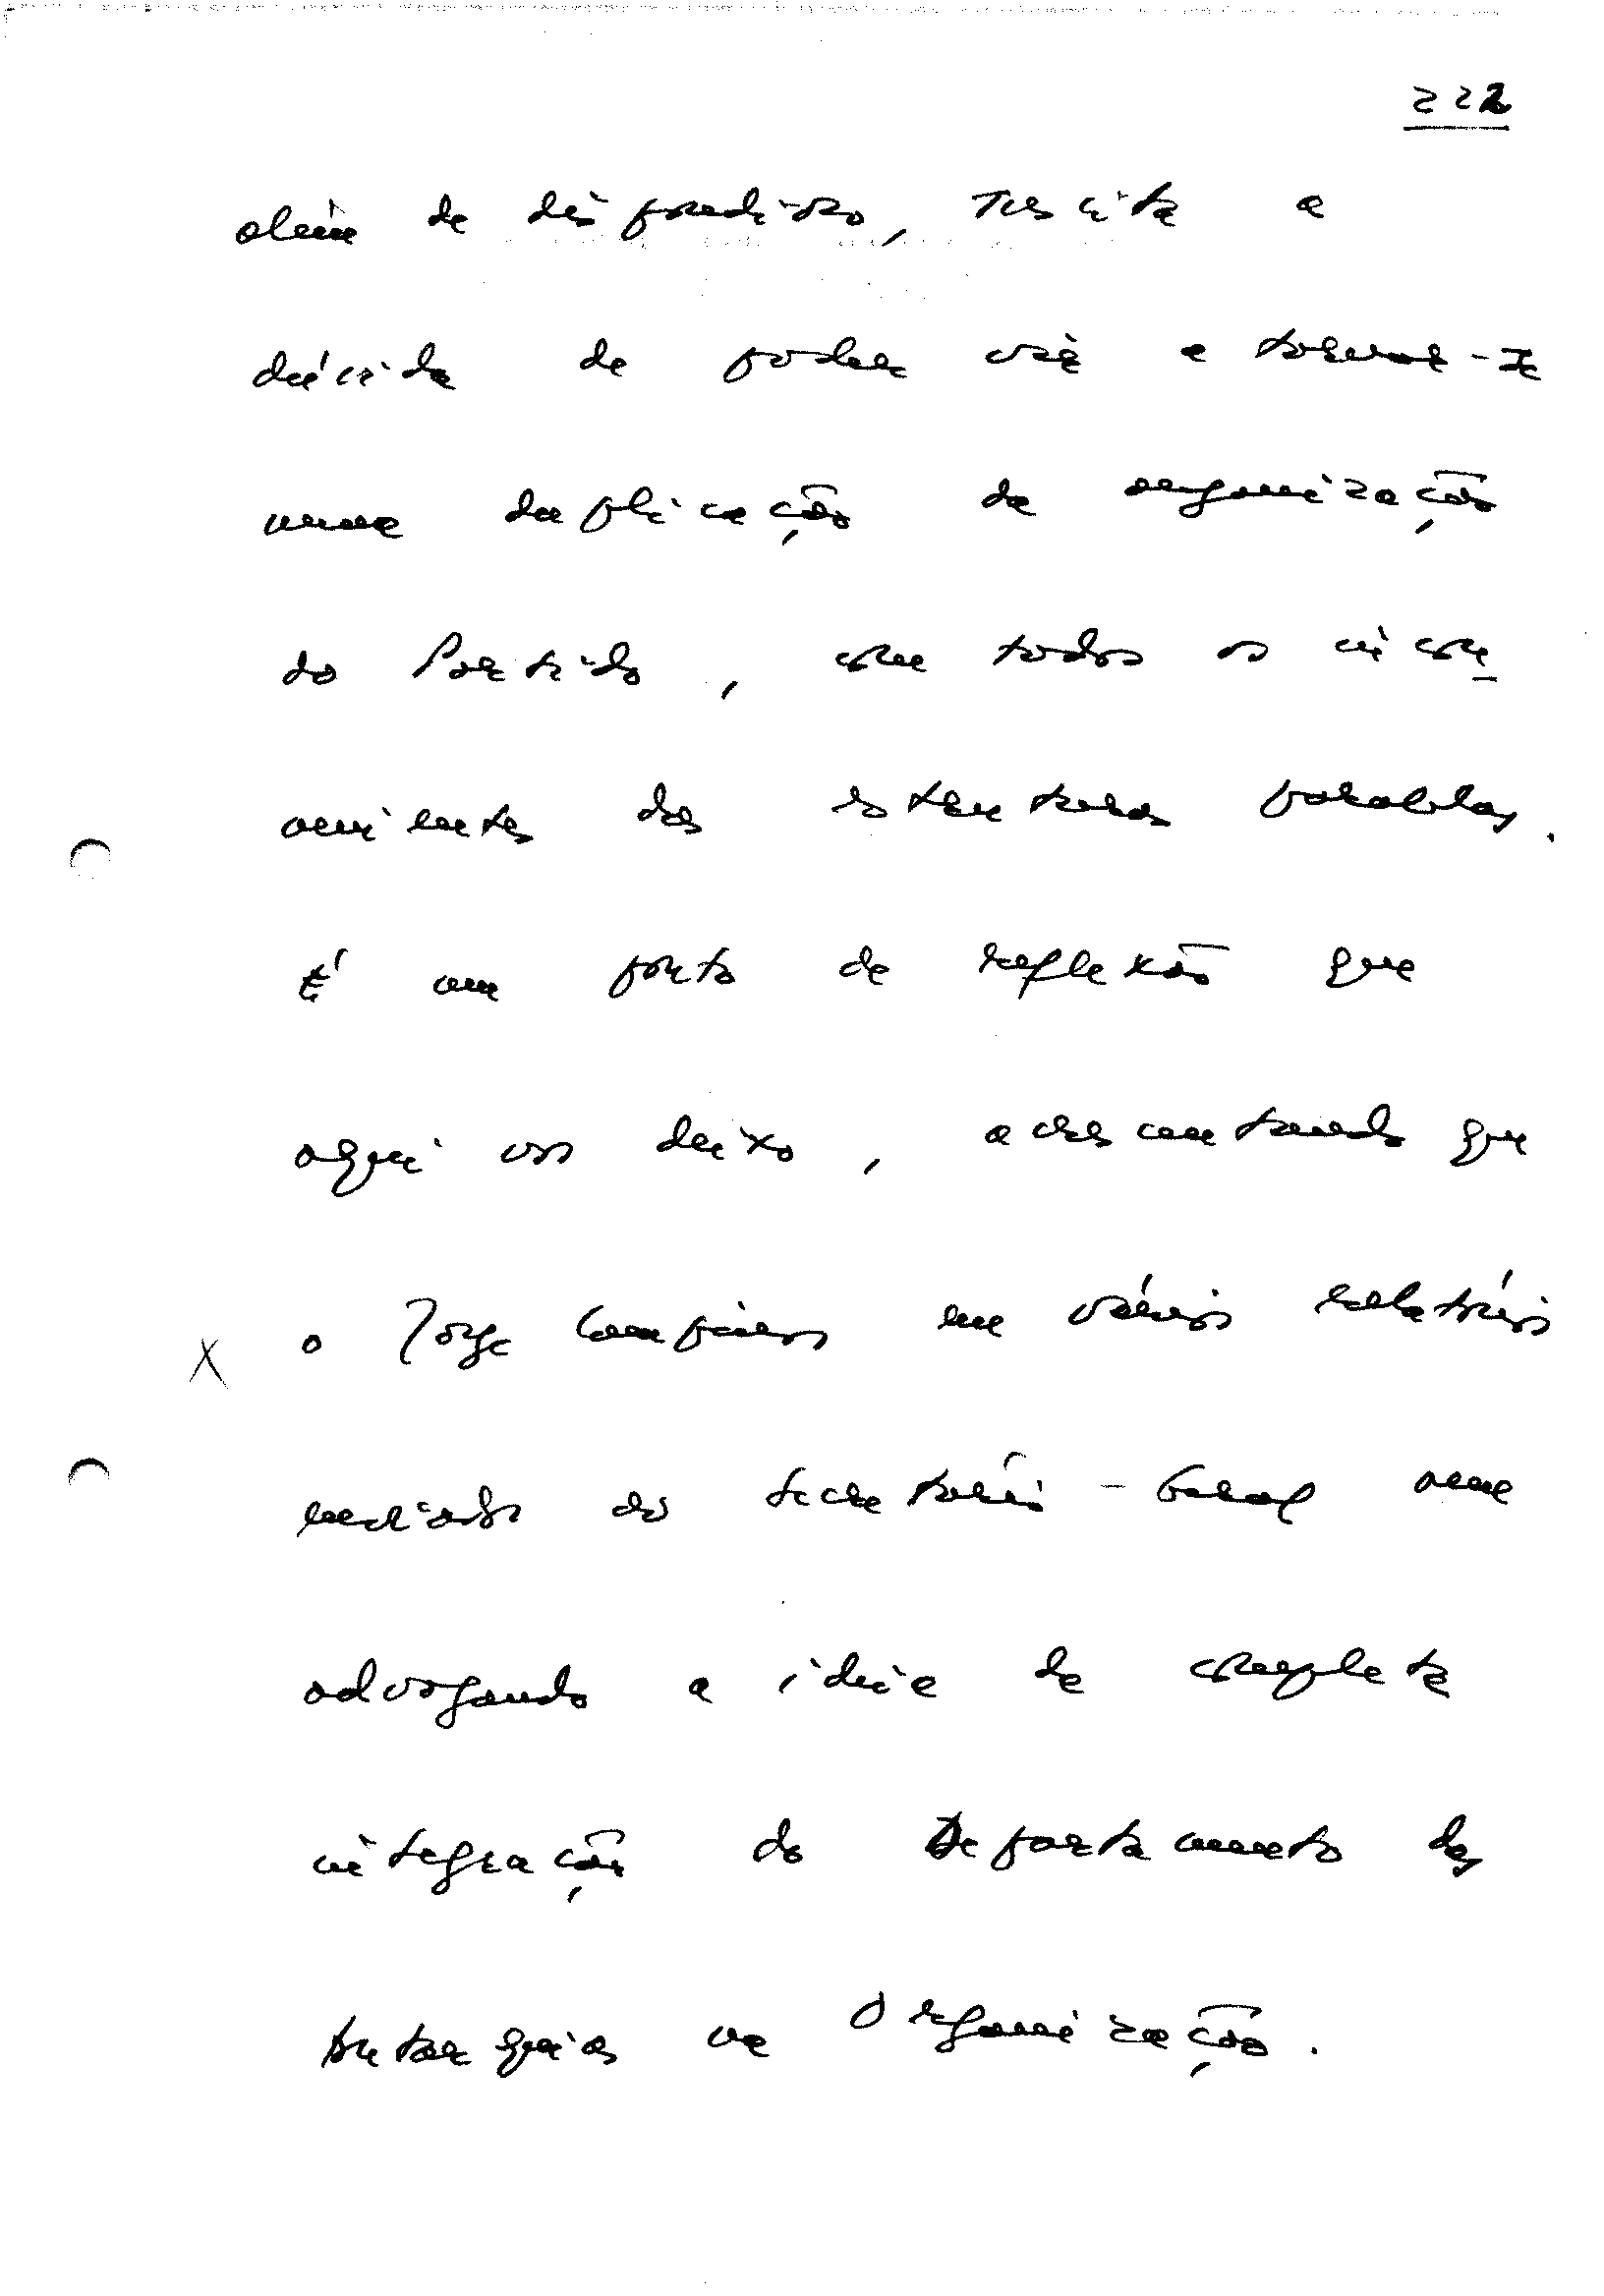 222
além de dispendioso, suscita a
dúvida de poder vir a tornar-se
uma duplicação da organização
do Partido, com todos os incon
venientes das estruturas paralelas.
É um ponto de reflexão que
aqui vos deixo, acrescentando que
o Jorge Campinos em vários relatórios
enviados ao Secretário-Geral vem
advogando a ideia da completa
integração do Departamento das
Autarquias na Organização.